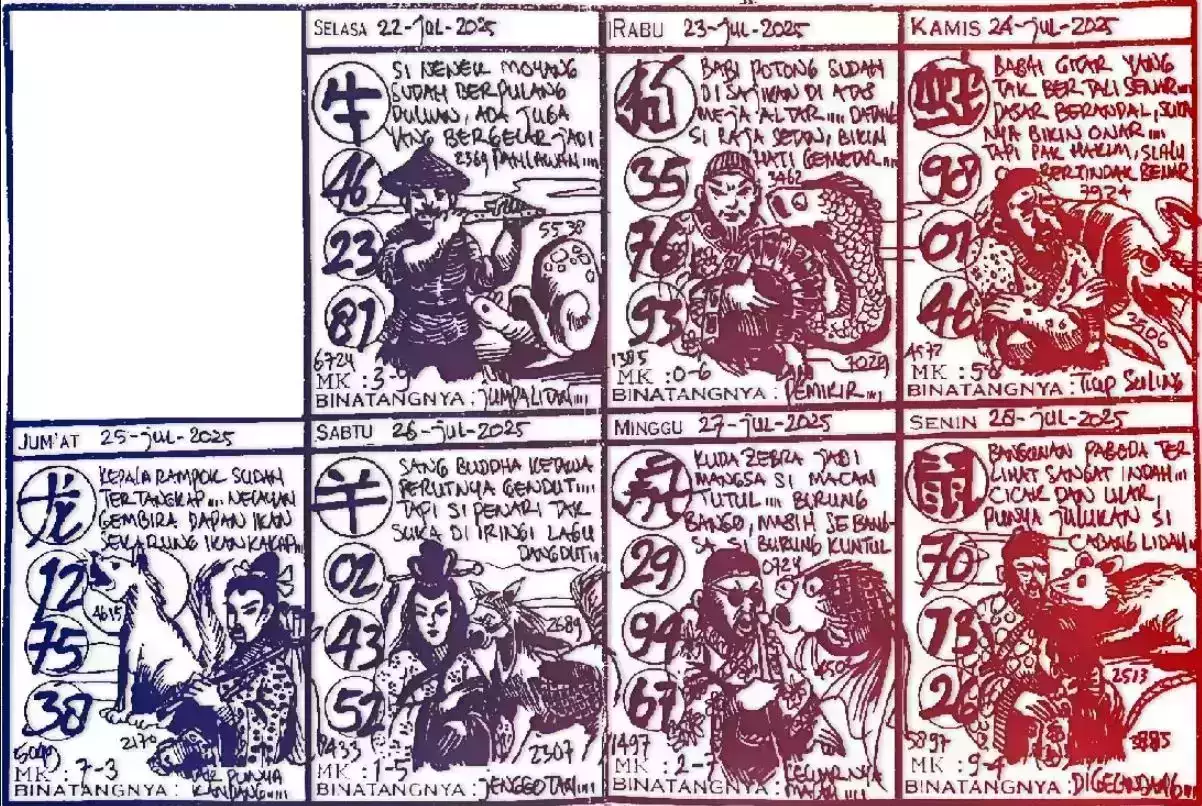 SELASA 22-JUL-2025
牛
SI NENEK MOYANG
SUDAH BERPULANG
DULUAN, ADA JUGA
YANG BERGELAR JADI
2369 PAHLAWAN....
46
23
87
5538
6724
MK : 3-9
BINATANGNYA : JUMPALITAN....
RABU 23-JUL-2025
狗
BABI POTONG SUDAH
DISAJIKAN DI ATAS
MEJA ALTAR.... DATANG
SI RAJA SETAN, BIKIN
HATI GEMETAR....
3462
35
76
93
1385
7029
MK : 0-6
BINATANGNYA : PEMIKIR....
KAMIS 24-JUL-2025
蛇
BABAH GITAR YANG
TAK BERTALI SENAR....
DASAR BERANDAL, SUKA
NYA BIKIN ONAR....
TAPI PAK HAKIM, SLALU
BERTINDAK BENAR
7924
98
01
46
2506
4572
MK : 5-8
BINATANGNYA : TIUP SULING
JUM'AT 25-JUL-2025
龙
KEPALA RAMPOK SUDAH
TERTANGKAP.... NELAYAN
GEMBIRA DAPAN IKAN
SEKARUNG IKAN KAKAP....
12
4615
75
38
2170
MK : 7-3
BINATANGNYA : PUNYA KANDANG....
SABTU 26-JUL-2025
羊
SANG BUDDHA KETAWA
PERUTNYA GENDUT....
TAPI SI PENARI TAK
SUKA DI IRINGI LAGU
DANGDUT....
02
43
2689
52
1433
2307
MK : 1-5
BINATANGNYA : JENGGOTAN....
MINGGU 27-JUL-2025
KUDA ZEBRA JADI
MANGSA SI MACAN
TUTUL.... BURUNG
BANGO, MASIH SEBANG-
SA SI BURUNG KUNTUL
0724
29
94
67
1497
MK : 2-7
BINATANGNYA : KELUARNYA MALAM....
SENIN 28-JUL-2025
鼠
BANGUNAN PAGODA TER
LIHAT SANGAT INDAH....
CICAK DAN ULAR,
PUNYA JULUKAN SI
CABANG LIDAH....
70
73
2513
26
5897
MK : 9-4
BINATANGNYA :